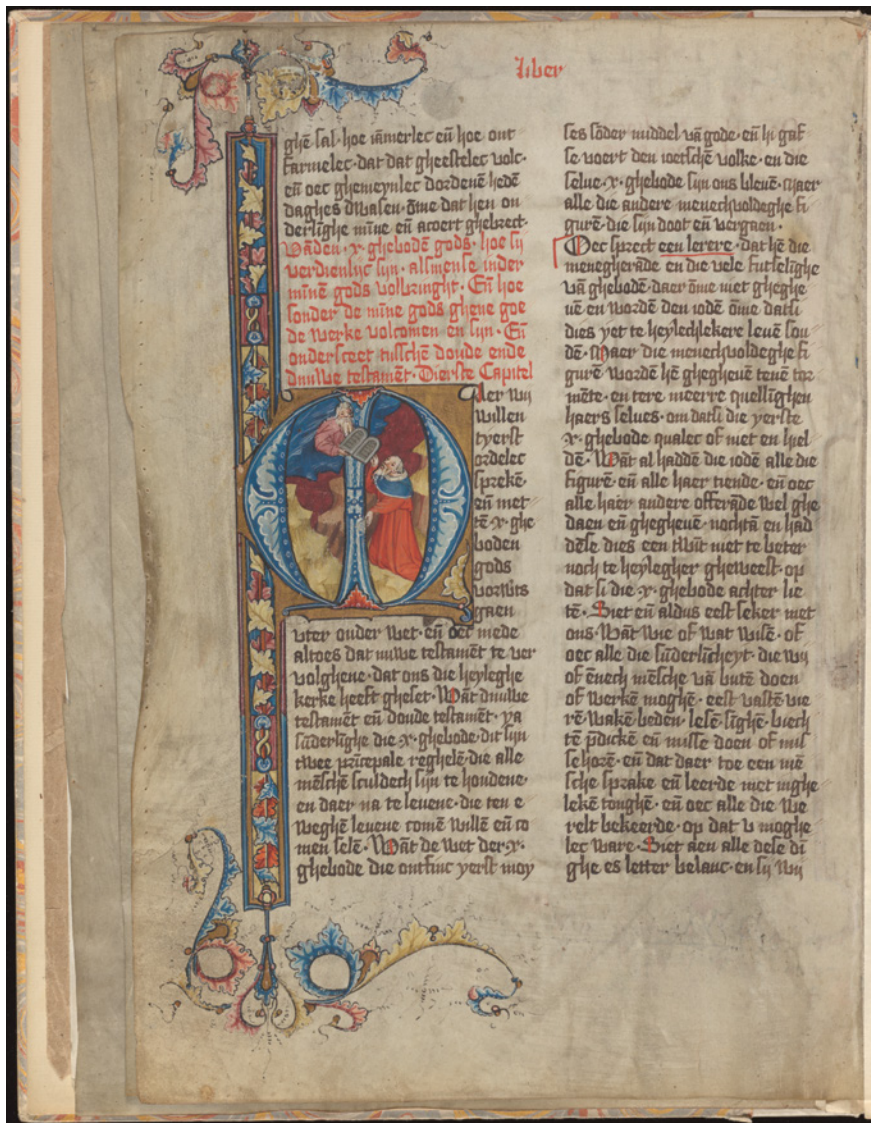 Liber
ghē sal· hoe iāmerlec eñ hoe ont
farmelec· dat dat gheestelec volc·
eñ oec ghemeynlec dordenē hedē
daghes dwasen· ōme dat hen on
derlīghe mīne eñ acoert ghebrect·
Vādē· x· ghebodē gods· hoe sij
verdienlijc sijn· alsmense inder
mīnē gods volbringht· Eñ hoe
sonder de mīne gods ghene goe
de werke volcomen en sijn· Eñ
ondersceet tusschē doude ende
dnuwe testamēt· Dierste Capitel
Mer wij
willen
tyerst
ordelec
sprekē·
eñ met
tē x· ghe
boden
gods
vorwts
gaen
vter ouder wet· eñ oec mede
altoes dat nuwe testamēt te ver
volghene· dat ons die heyleghe
kerke heeft gheset· Wāt dnuwe
testamēt eñ doude testamēt· ya
sūderlīghe die x· ghebode· dit sijn
twee prīcepale reghelē· die alle
mēschē sculdech sijn te houdene·
en daer na te levene· die ten e
weghē levene comē willē eñ co
men selē· Wāt de wet der x·
ghebode die ontfinc yerst moy
ses sōder middel vā gode· eñ hi gaf
se voert den ioetschē volke· en die
selve x· ghebode sijn ons blevē· maer
alle die andere menechvoldeghe fi
gurē· die sijn doot eñ vergaen·
Oec sprect een lerere· dat hē die
menegherāde en die vele sutselīghe
vā ghebodē· daer ōme niet gheghe
vē en wordē den iodē ōme datsi
dies yet te heylechlekere levē sou
dē· Maer die menechvoldeghe fi
gurē wordē hē gheghevē tevē tor
mēte· en tere meerre quellīghen
haers selves· om datsi die yerste
x· ghebode qualec of niet en hiel
dē· Wāt al haddē die iodē alle die
figurē· eñ alle haer tiende· eñ oec
alle haer andere offerāde wel ghe
daen eñ gheghevē· nochtā en had
dēse dies een twīt niet te beter
noch te heylegher gheweest· op
dat si die x· ghebode achter lie
tē· Siet eñ aldus eest seker met
ons· Wāt wie of wat wisē· of
oec alle die sūderlīcheyt· die wij
of ēnech mēsche vā butē doen
of werkē moghē· eest vastē vie
rē wakē beden· lesē sīghē· biech
tē p̄dickē eñ misse doen of mis
se horē· eñ dat daer toe een mē
sche sprake eñ leerde met īnghe
lekē tonghē· eñ oec alle die we
relt bekeerde· op dat v moghe
lec ware· Siet aen alle dese dī
ghe es letter belanc· en sij wij